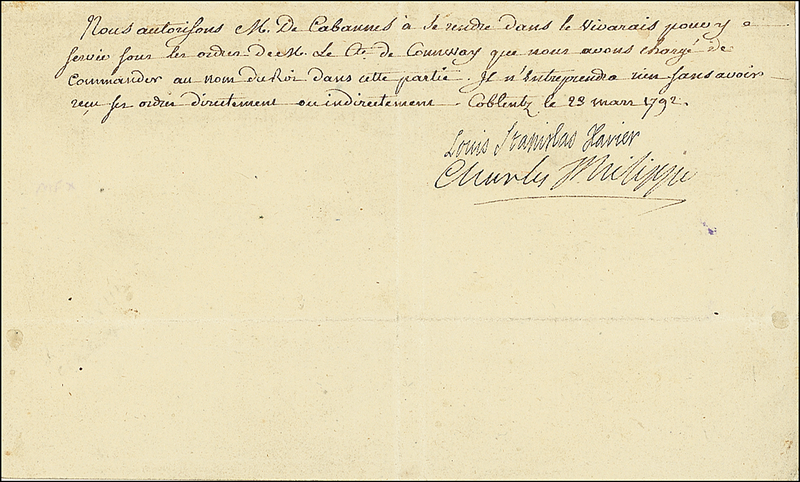 Nous autorisons M. De Cabannes à se rendre dans le Vivarais pour y
servir sous les ordres de M. Le Cte. de Connway que nous avons chargé de
Commander au nom du Roi dans cette partie. Il n'Entreprendra rien sans avoir
reçu ses ordres directement ou indirectement. Coblentz le 23 mars 1792.
Louis Stanislas Xavier
Charles Philippe